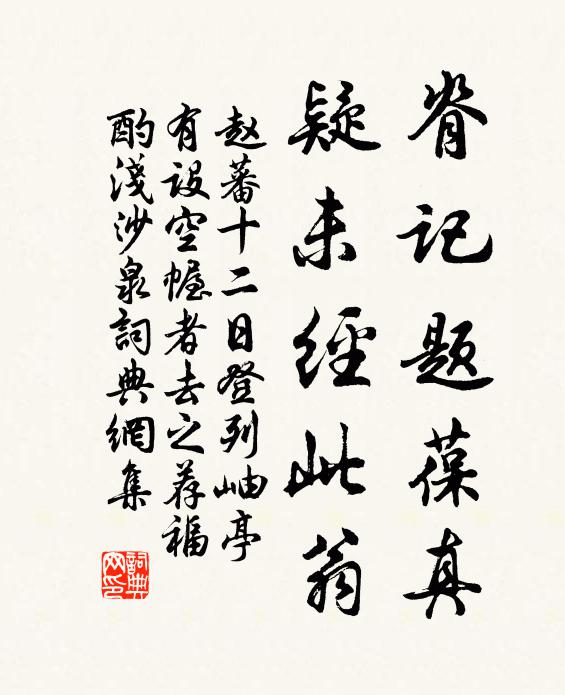 脊记题葆真
疑未經此翁
赵蕃十二日登列岫亭
有设空幄者去之荐福
酌淺沙泉詞典網集
詞典网印